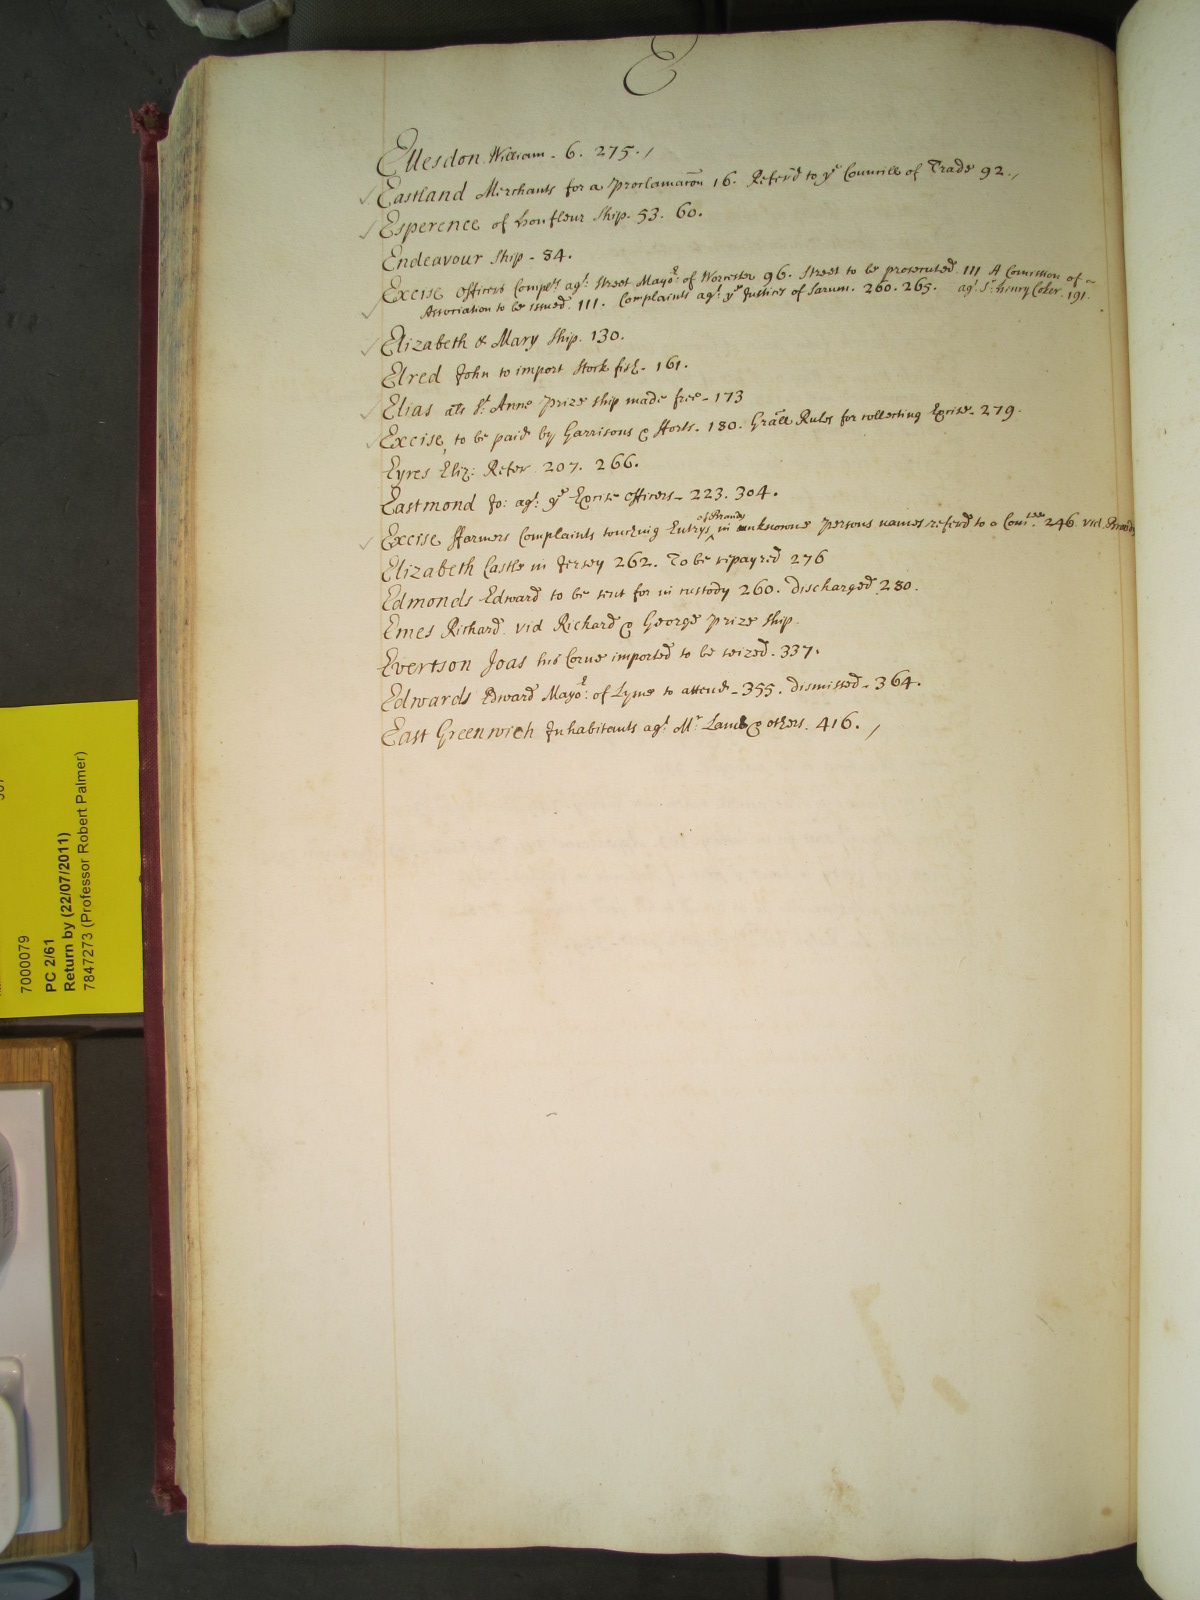 E
Ellesdon William - 6. 275.
Eastland Merchants for a Proclamacõn 16. Referr'd to yᵉ Councill of Trade 92.
Esperence of honfleur Ship. 53. 60.
Endeavour Ship - 84.
Excise Officers Complᵗˢ agᵗ Street Mayoʳ: of Worcester 96. Street to be prosecuted. 111 A Comission of
Association to be issued. 111. Complaints agᵗ yᵉ Justices of Sarum. 260. 265. agᵗ Sʳ henry Coker. 191.
Elizabeth & Mary Ship. 130.
Elred John to import Stock fish - 161.
Elias als Sᵗ Anne Prize ship made free - 173
Excise, to be paid by Garrisons & fforts. 180. Grãll Rules for collecting Excise. 279.
Eyres Eliz: Refer 207. 266.
Eastmond Jo: agᵗ yᵉ Excise Officers - 223. 304.
Excise ffarmers Complaints touching Entrys of Brandy in unknowne Persons names referrd to a Comᵗᵉᵉ 246. vid. Brandy
Elizabeth Castle in Jersey 262. To be repayred 276
Edmonds Edward to be sent for in custody 260. discharged 280.
Emes Richard. vid Richard & George Prize Ship.
Evertson Joas his Corne imported to be seized. 337.
Edwards Edward Mayoʳ: of Lyme to attend - 355. dismissed - 364.
East Greenwich Inhabitants agᵗ Mʳ Lamb & others. 416.
7000079
PC 2/61
Return by (22/07/2011)
7847273 (Professor Robert Palmer)